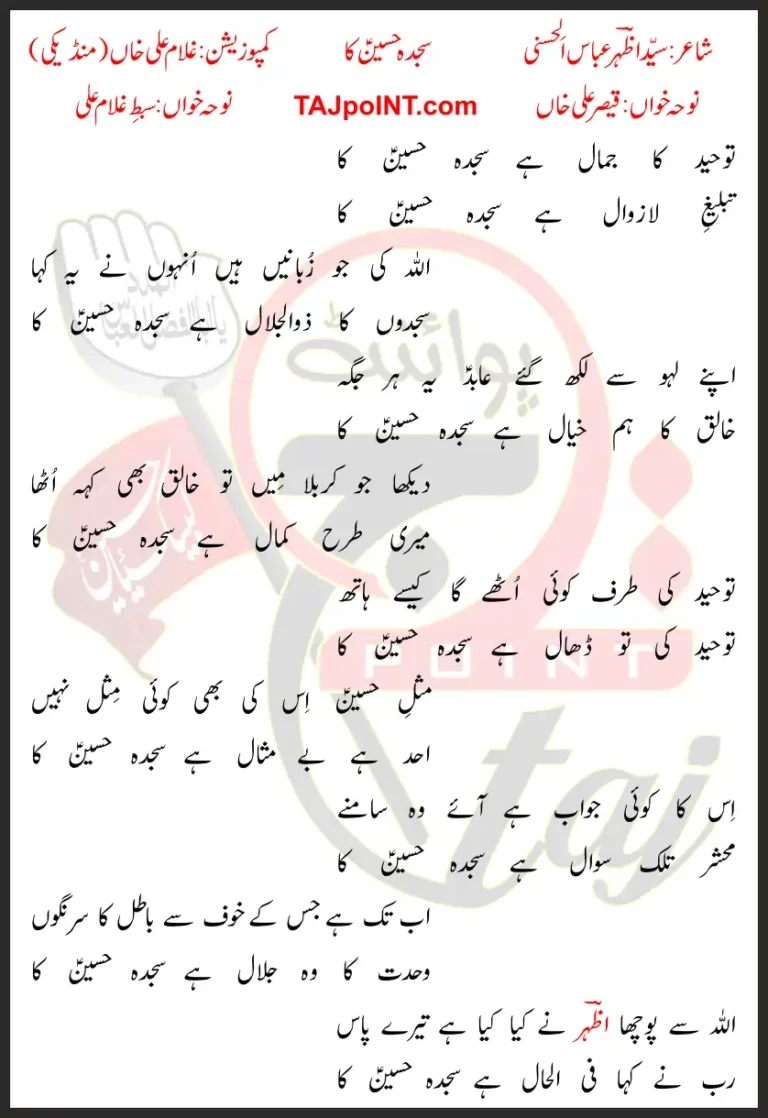 شاعر: سیّد اظہر عباس الحسنی سجدہ حسینؑ کا کمپوزیشن: غلام علی خاں (منڈیکی)
نوحہ خواں: قیصر علی خاں TAJpoINT.com نوحہ خواں: سبطِ غلام علی
توحید کا جمال ہے سجدہ حسینؑ کا
تبلیغِ لازوال ہے سجدہ حسینؑ کا
اللہ کی جو زُبانیں ہیں اُنہوں نے یہ کہا
سجدوں کا ذوالجلال ہے سجدہ حسینؑ کا
اپنے لہو سے لکھ گئے عابدؑ یہ ہر جگہ
خالق کا ہم خیال ہے سجدہ حسینؑ کا
دیکھا جو کربلا مِیں تو خالق بھی کہہ اُٹھا
میری طرح کمال ہے سجدہ حسینؑ کا
توحید کی طرف کوئی اُٹھے گا کیسے ہاتھ
توحید کی تو ڈھال ہے سجدہ حسینؑ کا
مثلِ حسینؑ اِس کی بھی کوئی مِثل نہیں
احد ہے بے مثال ہے سجدہ حسینؑ کا
اِس کا کوئی جواب ہے آئے وہ سامنے
محشر تلک سوال ہے سجدہ حسینؑ کا
اب تک ہے جس کے خوف سے باطل کا سرنگوں
وحدت کا وہ جلال ہے سجدہ حسینؑ کا
اللہ سے پوچھا اظہر نے کیا کیا ہے تیرے پاس
رب نے کہا فی الحال ہے سجدہ حسینؑ کا
پوائنٹ
POINT
taj